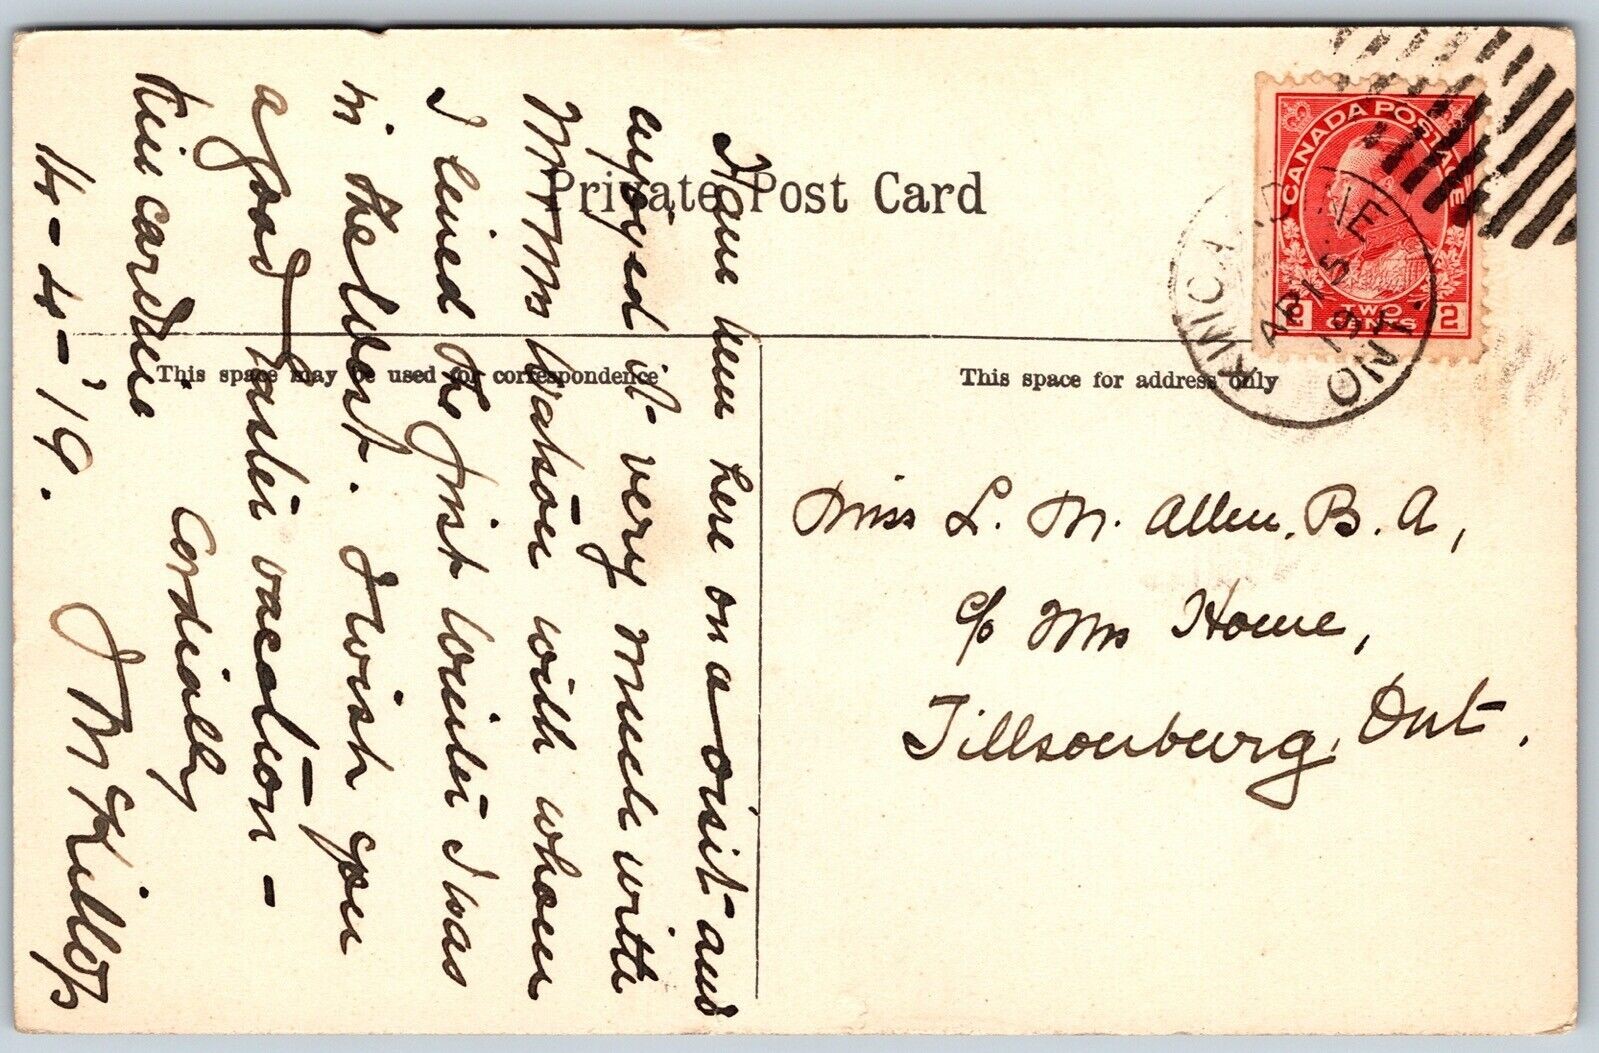 Private Post Card
CANADA POSTAGE
2 TWO CENTS 2
KINCARDINE
AP 15
19
ONT.
This space may be used for correspondence
This space for address only
Have been here on a visit and
enjoyed it very much with
Mr & Mrs Watson with whom
I lived the first winter I was
in the West. I wish you
a good Easter vacation -
Cordially
Kincardine
14-4-'19.
J McKillop
Miss L. M. Allen. B. A,
c/o Mrs Howe,
Tillsonburg, Ont.